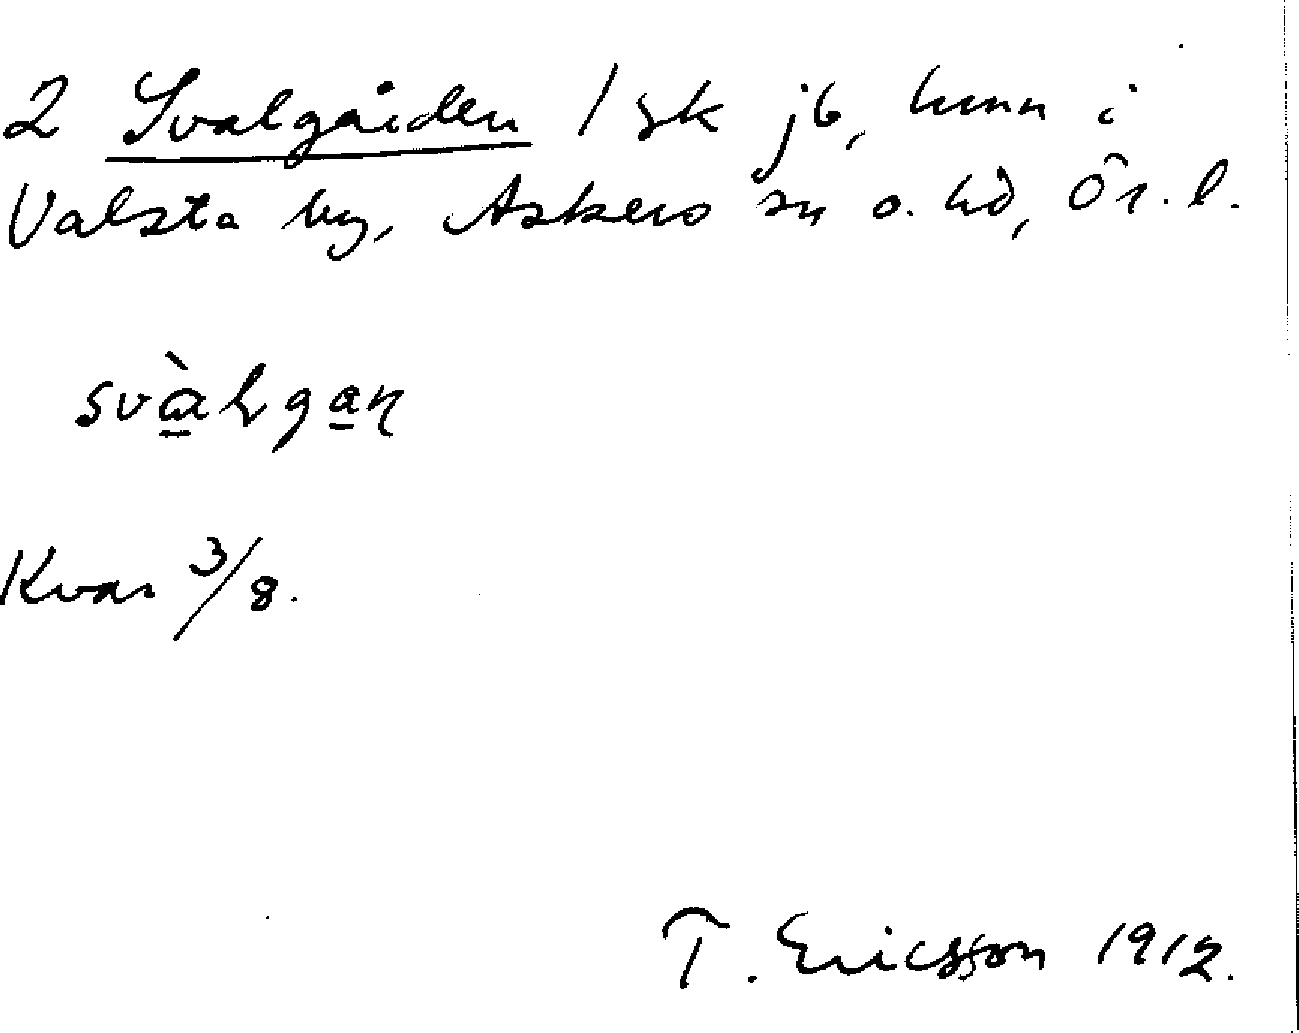 2 Svalgården 1 sk jb, hmn i
Valsta by, Askers sn o. hd, Ör. l.
Kvar 3/8.
T. Ericsson 1912.